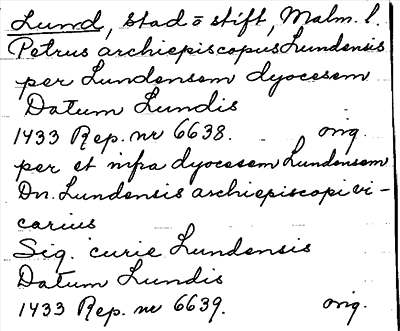 Lund, stad o stift, Malm. l.
Petrus archiepiscopus Lundensis
per Lundensem dyocesem
Datum Lundis
1433 Rep. nr 6638. orig.
per et infra dyocesem Lundensem
Dn. Lundensis archiepiscopi vi-
carius
Sig. curie Lundensis
Datum Lundis
1433 Rep. nr 6639. orig.